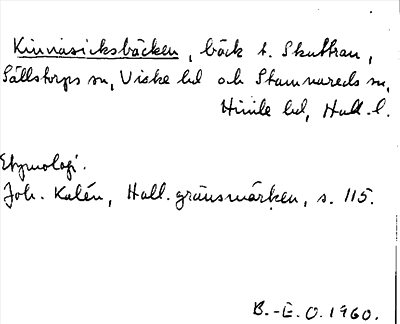 Kinnasicksbäcken, bäck t. Skuttran,
Sällstorps sn, Viske hd och Stamnareds sn,
Himle hd, Hall. l.
Etymologi.
Joh. Kalén, Hall. gränsmärken, s. 115.
B.-E. O. 1960.